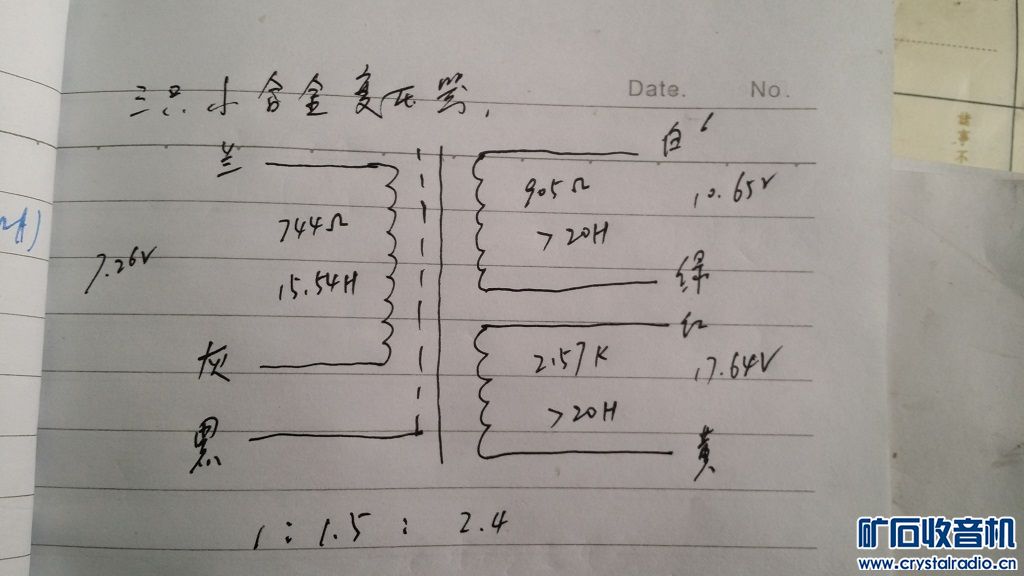 三只小合金变压器.
Date. No.
兰
白
744Ω
905Ω
10.65V
7.26V
15.54H
>20H
绿
灰
红
2.57K
17.64V
>20H
黑
黄
1:1.5:2.4
矿石收音机
www.crystalradio.cn